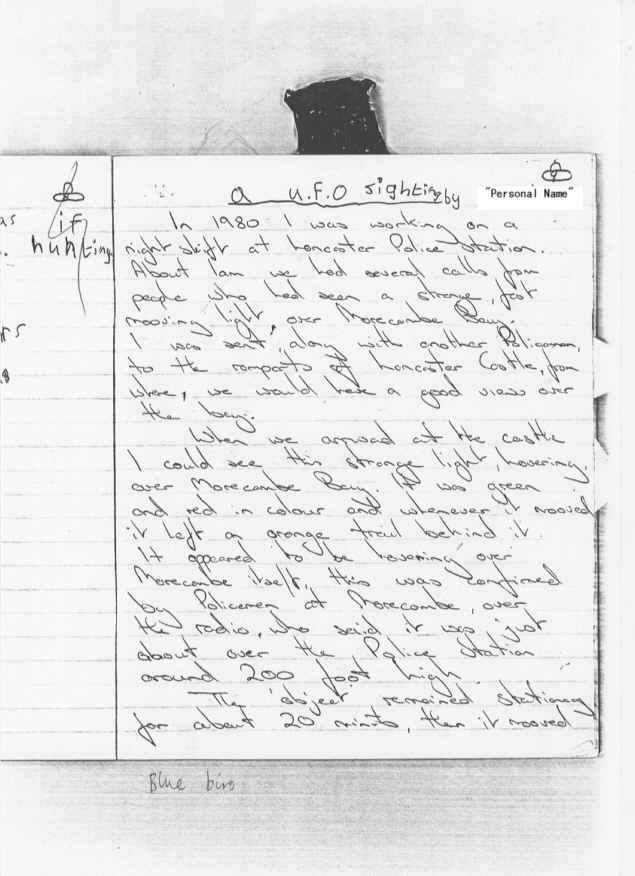 as if
hunting
rs
a U.F.O sighting by "Personal Name"
In 1980 I was working on a
night shift at Lancaster Police Station.
About 1am we had several calls from
people who had seen a strange, fast
mooving light, over Morecambe Bay.
I was sent, along with another Policeman,
to the ramparts of Lancaster Castle, from
where, we would have a good view over
the bay.
When we arrived at the castle
I could see this strange light, hovering,
over Morecambe Bay. It was green
and red in colour and whenever it mooved
it left an orange trail behind it.
It appeared to be hovering over
Morecambe itself, this was confirmed
by Policemen at Morecambe, over
the radio, who said it was just
about over the Police Station
around 200 foot high.
The 'object' remained stationary
for about 20 minuts, then it mooved
Blue biro